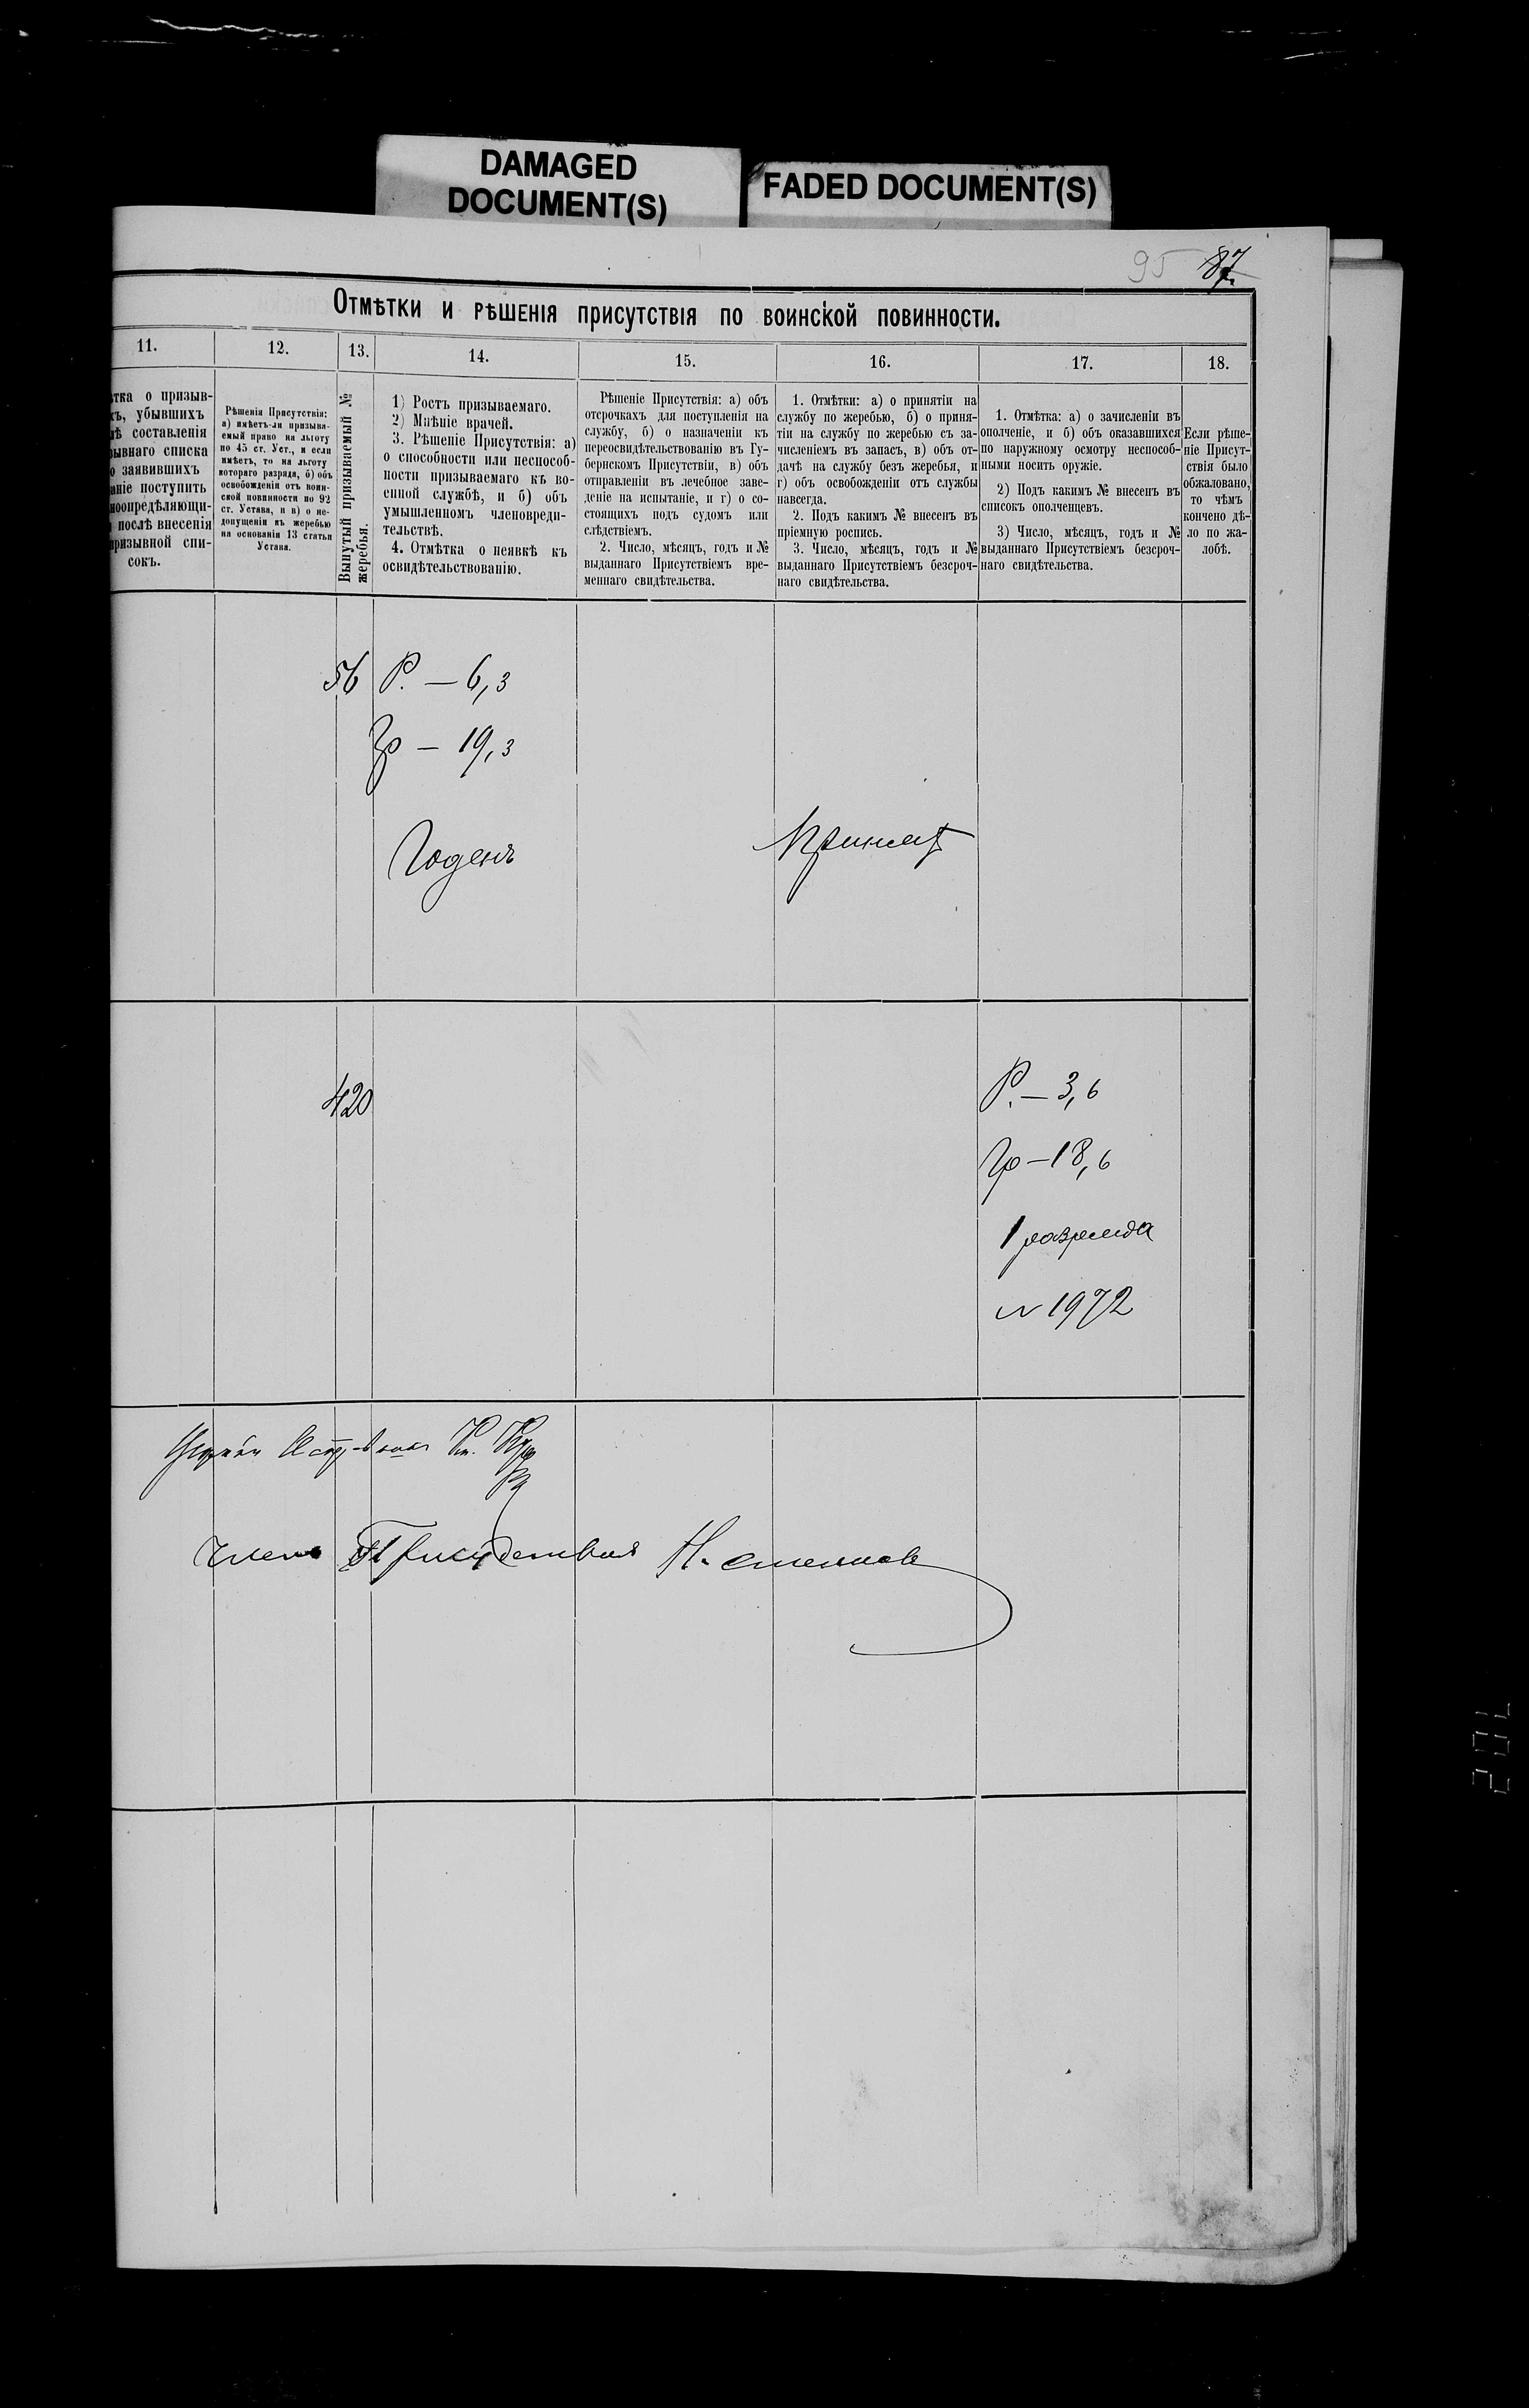 DAMAGED
DOCUMENT(S)
FADED DOCUMENT(S)
95 87
Отмѣтки и рѣшенія присутствія по воинской повинности.
11.
12.
13.
14.
15.
16.
17.
18.
тка о призыв-
хъ, убывшихъ
составленія
ывнаго списка
о заявившихъ
аніе поступить
ноопредѣляющи-
послѣ внесенія
призывной спи-
сокъ.
Рѣшенія Присутствія:
а) имѣетъ-ли призыва-
емый право на льготу
по 45 ст. Уст., и если
имѣетъ, то на льготу
котораго разряда, б) объ
освобожденіи отъ воин-
ской повинности по 92
ст. Устава, и в) о не-
допущеніи къ жеребью
на основаніи 13 статьи
Устава.
Вынутый призываемый №
жеребья.
1) Ростъ призываемаго.
2) Мнѣніе врачей.
3. Рѣшеніе Присутствія: а)
о способности или неспособ-
ности призываемаго къ во-
енной службѣ, и б) объ
умышленномъ членовреди-
тельствѣ.
4. Отмѣтка о неявкѣ къ
освидѣтельствованію.
Рѣшеніе Присутствія: а) объ
отсрочкахъ для поступленія на
службу, б) о назначеніи къ
переосвидѣтельствованію въ Гу-
бернскомъ Присутствіи, в) объ
отправленіи въ лечебное заве-
деніе на испытаніе, и г) о со-
стоящихъ подъ судомъ или
слѣдствіемъ.
2. Число, мѣсяцъ, годъ и №
выданнаго Присутствіемъ вре-
меннаго свидѣтельства.
1. Отмѣтки: а) о принятіи на
службу по жеребью, б) о приня-
тіи на службу по жеребью съ за-
численіемъ въ запасъ, в) объ от-
дачѣ на службу безъ жеребья, и
г) объ освобожденіи отъ службы
навсегда.
2. Подъ какимъ № внесенъ въ
пріемную роспись.
3. Число, мѣсяцъ, годъ и №
выданнаго Присутствіемъ безсроч-
наго свидѣтельства.
1. Отмѣтка: а) о зачисленіи въ
ополченіе, и б) объ оказавшихся
по наружному осмотру неспособ-
ными носить оружіе.
2) Подъ какимъ № внесенъ въ
списокъ ополченцевъ.
3) Число, мѣсяцъ, годъ и №
выданнаго Присутствіемъ безсроч-
наго свидѣтельства.
Если рѣше-
ніе Присут-
ствія было
обжаловано,
то чѣмъ
кончено дѣ-
ло по жа-
лобѣ.
56 Р. — 6,3
Гр — 19,3
Годенъ
Принятъ
420
Р. — 3,6
Гр — 18,6
1 разряда
№ 1972
Членъ Присудствія Н.